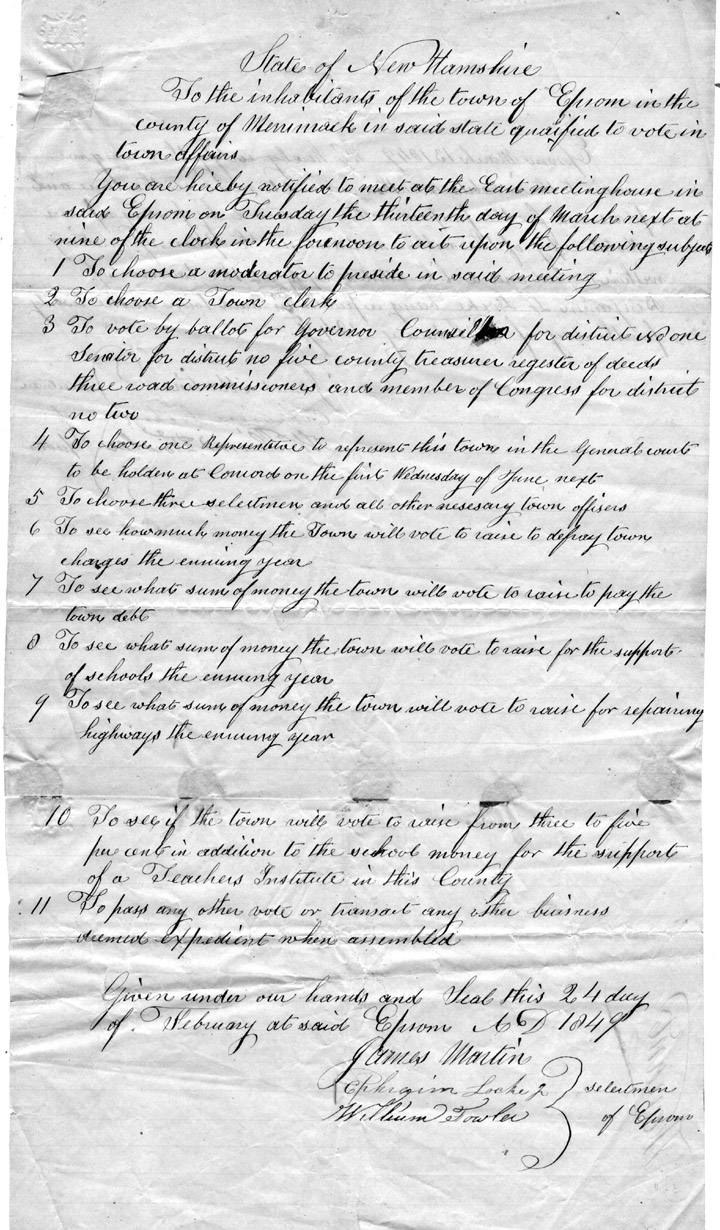 State of New Hamshire
To the inhabitants of the town of Epsom in the
county of Merrimack in said state quaified to vote in
town affairs
You are hereby notified to meet at the East meetinghouse in
said Epsom on Tuesday the thirteenth day of March next at
nine of the clock in the forenoon to act upon the following subjects
1 To choose a moderator to preside in said meeting
2 To choose a Town clerk
3 To vote by ballot for Governor for district No one
Senator for district no five county treasurer regester of deeds
three road commissioners and member of Congress for district
no two
4 To choose one Representative to represent this town in the General court
to be holden at Concord on the first Wednesday of June next
5 To choose three selectmen and all other nesesary town offisers
6 To see how much money the Town will vote to raise to defray town
charges the ensuing year
7 To see what sum of money the town will vote to raise to pay the
town debt
8 To see what sum of money the town will vote to raise for the support
of schools the ensuing year
9 To see what sum of money the town will vote to raise for repairing
highways the ensuing year
10 To see if the town will vote to raise from three to five
per cent in addition to the school money for the support
of a Teachers Institute in this County
11 To pass any other vote or transact any other buisness
deemed expedient when assembled
Given under our hands and Seal this 24 day
of February at said Epsom A D 1849
James Martin
Ephraim Locke 2 selectmen
William Fowler of Epsom